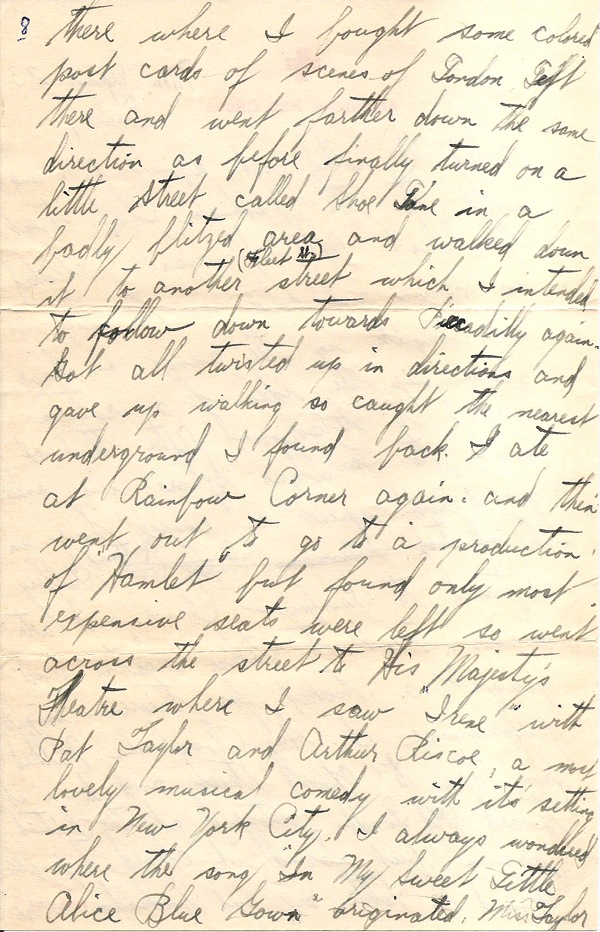 8
there where I bought some colored
post cards of scenes of London Left
there and went farther down the same
direction as before finally turned on a
little street called Shoe Lane in a
badly blitzed area and walked down
(Fleet St.)
it to another street which I intended
to follow down towards Piccadilly again.
Got all twisted up in directions and
gave up walking so caught the nearest
underground I found back. I ate
at Rainbow Corner again. and then
went out to go to a production
of "Hamlet" but found only most
expensive seats were left so went
across the street to His Majesty's
Theatre where I saw "Irene" with
Pat Taylor and Arthur Riscoe, a most
lovely musical comedy with it's setting
in New York City. I always wondered
where the song "In My Sweet Little
Alice Blue Gown" originated. Miss Taylor